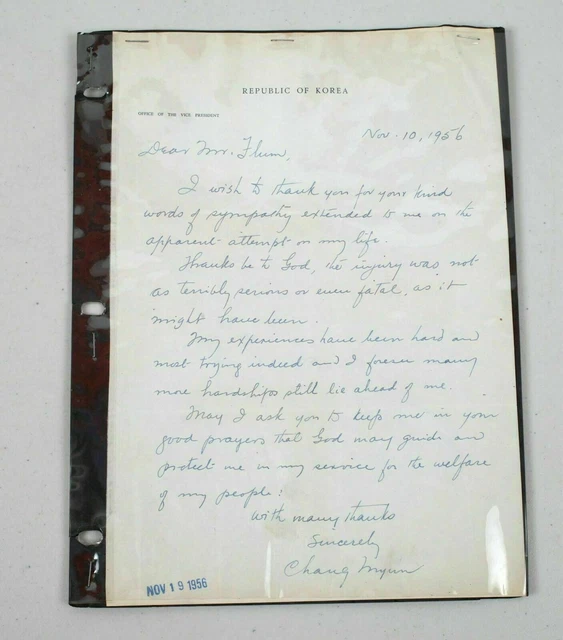 REPUBLIC OF KOREA
OFFICE OF THE VICE PRESIDENT
Nov. 10, 1956
Dear Mr. Flum,
I wish to thank you for your kind
words of sympathy extended to me on the
apparent attempt on my life.
Thanks be to God, the injury was not
as terribly serious or even fatal, as it
might have been.
My experiences have been hard and
most trying indeed and I foresee many
more hardships still lie ahead of me.
May I ask you to keep me in your
good prayers that God may guide and
protect me in my service for the welfare
of my people:
With many thanks
Sincerely
Chang Myun
NOV 19 1956